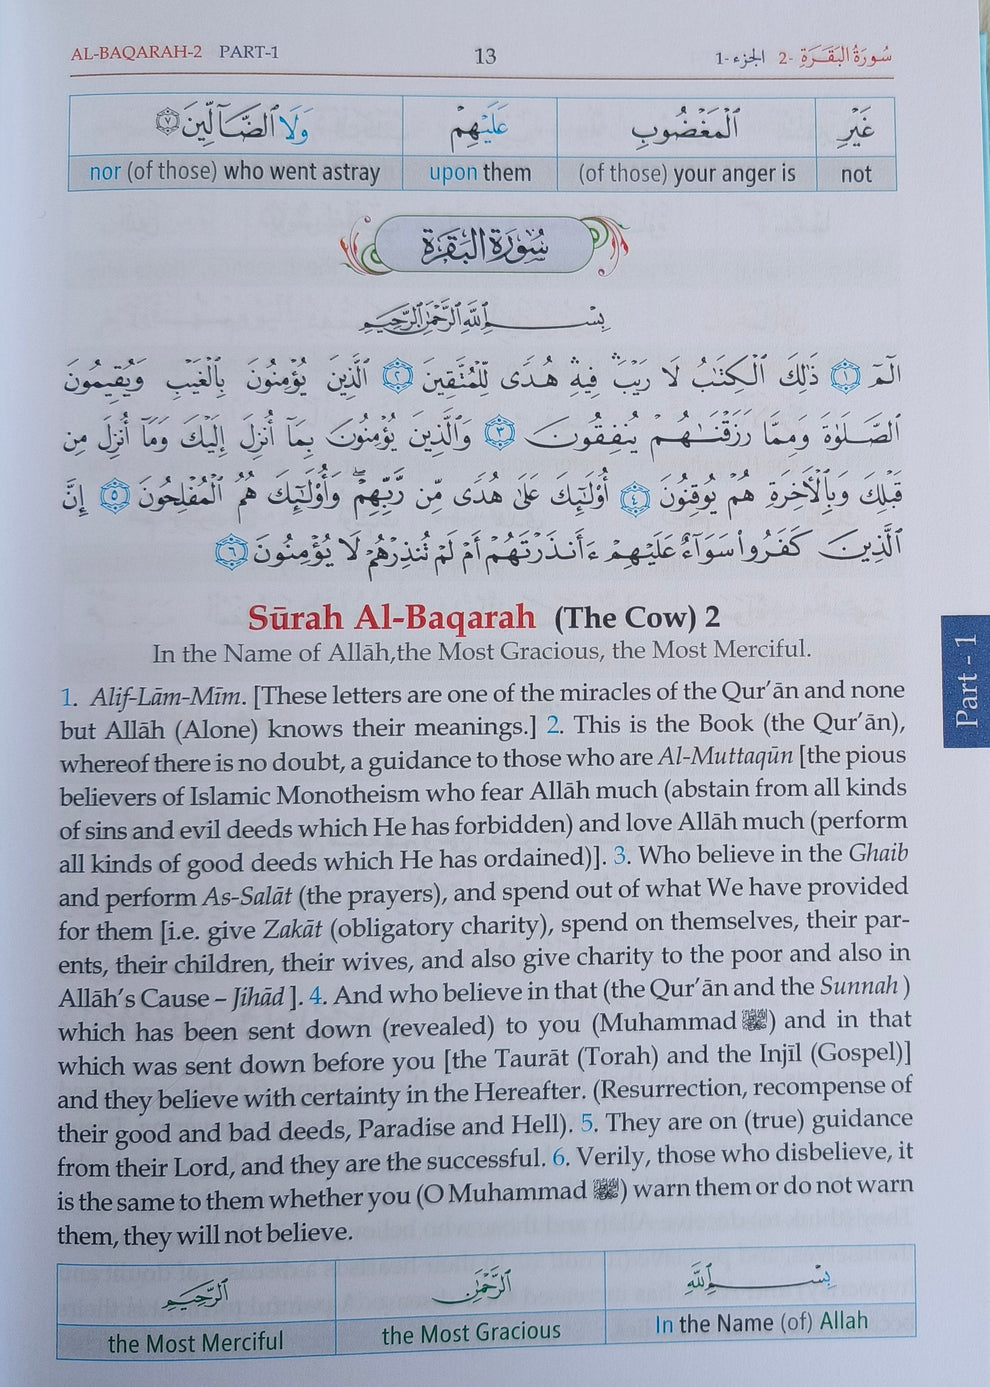 AL-BAQARAH-2 PART-1 13 سُورَةُ الْبَقَرَةِ -2 الجزء-1
غَيْرِ الْمَغْضُوبِ عَلَيْهِمْ وَلَا الضَّآلِّينَ ٧
not (of those) your anger is upon them nor (of those) who went astray
سُورَةُ البَقَرَة
بِسْمِ اللَّهِ الرَّحْمَٰنِ الرَّحِيمِ
الٓمٓ ١ ذَٰلِكَ الْكِتَٰبُ لَا رَيْبَ ۛ فِيهِ ۛ هُدًى لِّلْمُتَّقِينَ ٢ الَّذِينَ يُؤْمِنُونَ بِالْغَيْبِ وَيُقِيمُونَ
الصَّلَوٰةَ وَمِمَّا رَزَقْنَٰهُمْ يُنفِقُونَ ٣ وَالَّذِينَ يُؤْمِنُونَ بِمَآ أُنزِلَ إِلَيْكَ وَمَآ أُنزِلَ مِن
قَبْلِكَ وَبِالْأَخِرَةِ هُمْ يُوقِنُونَ ٤ أُوْلَٰٓئِكَ عَلَىٰ هُدًى مِّن رَّبِّهِمْ ۖ وَأُوْلَٰٓئِكَ هُمُ الْمُفْلِحُونَ ٥ إِنَّ
الَّذِينَ كَفَرُوا سَوَآءٌ عَلَيْهِمْ ءَأَنذَرْتَهُمْ أَمْ لَمْ تُنذِرْهُمْ لَا يُؤْمِنُونَ ٦
Sūrah Al-Baqarah (The Cow) 2
In the Name of Allāh,the Most Gracious, the Most Merciful.
1. Alif-Lām-Mīm. [These letters are one of the miracles of the Qur'ān and none
but Allāh (Alone) knows their meanings.] 2. This is the Book (the Qur'ān),
whereof there is no doubt, a guidance to those who are Al-Muttaqūn [the pious
believers of Islamic Monotheism who fear Allāh much (abstain from all kinds
of sins and evil deeds which He has forbidden) and love Allāh much (perform
all kinds of good deeds which He has ordained)]. 3. Who believe in the Ghaib
and perform As-Salāt (the prayers), and spend out of what We have provided
for them [i.e. give Zakāt (obligatory charity), spend on themselves, their par-
ents, their children, their wives, and also give charity to the poor and also in
Allāh's Cause – Jihād ]. 4. And who believe in that (the Qur'ān and the Sunnah )
which has been sent down (revealed) to you (Muhammad ﷺ) and in that
which was sent down before you [the Taurāt (Torah) and the Injīl (Gospel)]
and they believe with certainty in the Hereafter. (Resurrection, recompense of
their good and bad deeds, Paradise and Hell). 5. They are on (true) guidance
from their Lord, and they are the successful. 6. Verily, those who disbelieve, it
is the same to them whether you (O Muhammad ﷺ) warn them or do not warn
them, they will not believe.
بِسْمِ اللَّهِ الرَّحْمَٰنِ الرَّحِيمِ
In the Name (of) Allah the Most Gracious the Most Merciful
Part - 1